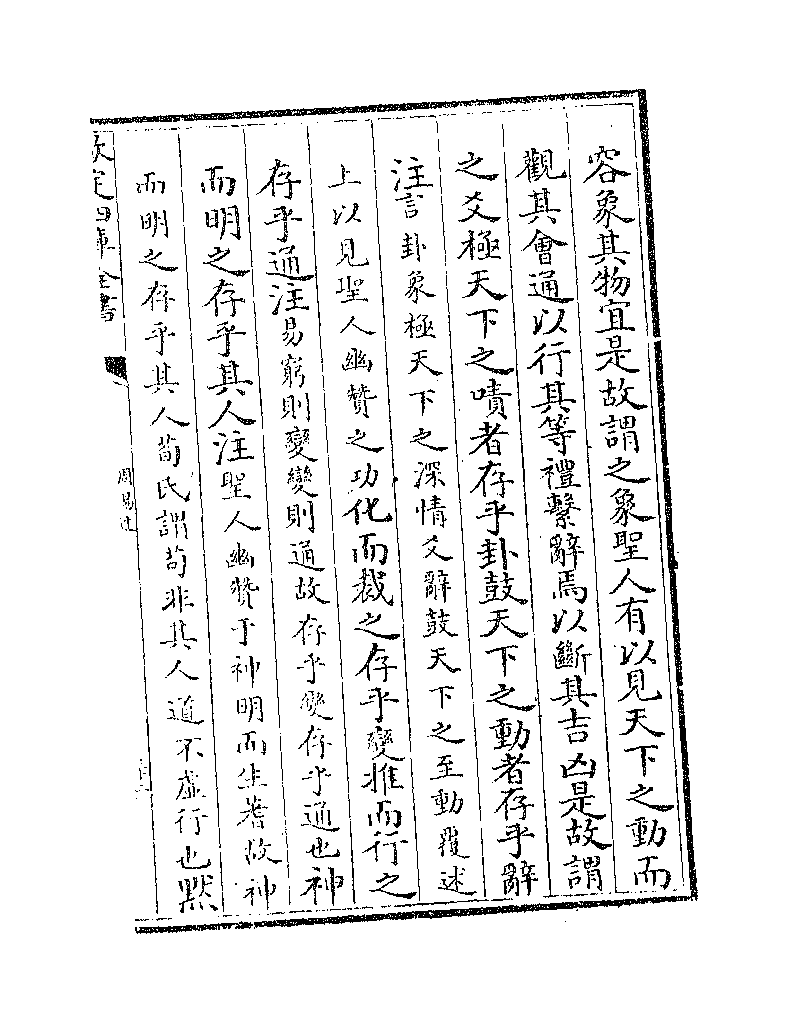 容象其物宜是故謂之象聖人有以見天下之動而
觀其會通以行其等禮繫辭焉以斷其吉凶是故謂
之爻極天下之嘖者存乎卦鼓天下之動者存乎辭
注言卦象極天下之深情爻辭鼓天下之至動覆述
上以見聖人幽贊之功化而裁之存乎變推而行之
存乎通注易窮則變變則通故存乎變存乎通也神
而明之存乎其人注聖人幽贊于神明而生蓍故神
而明之存乎其人荀氏謂苟非其人道不虛行也黙
欽定四庫全書
周易述